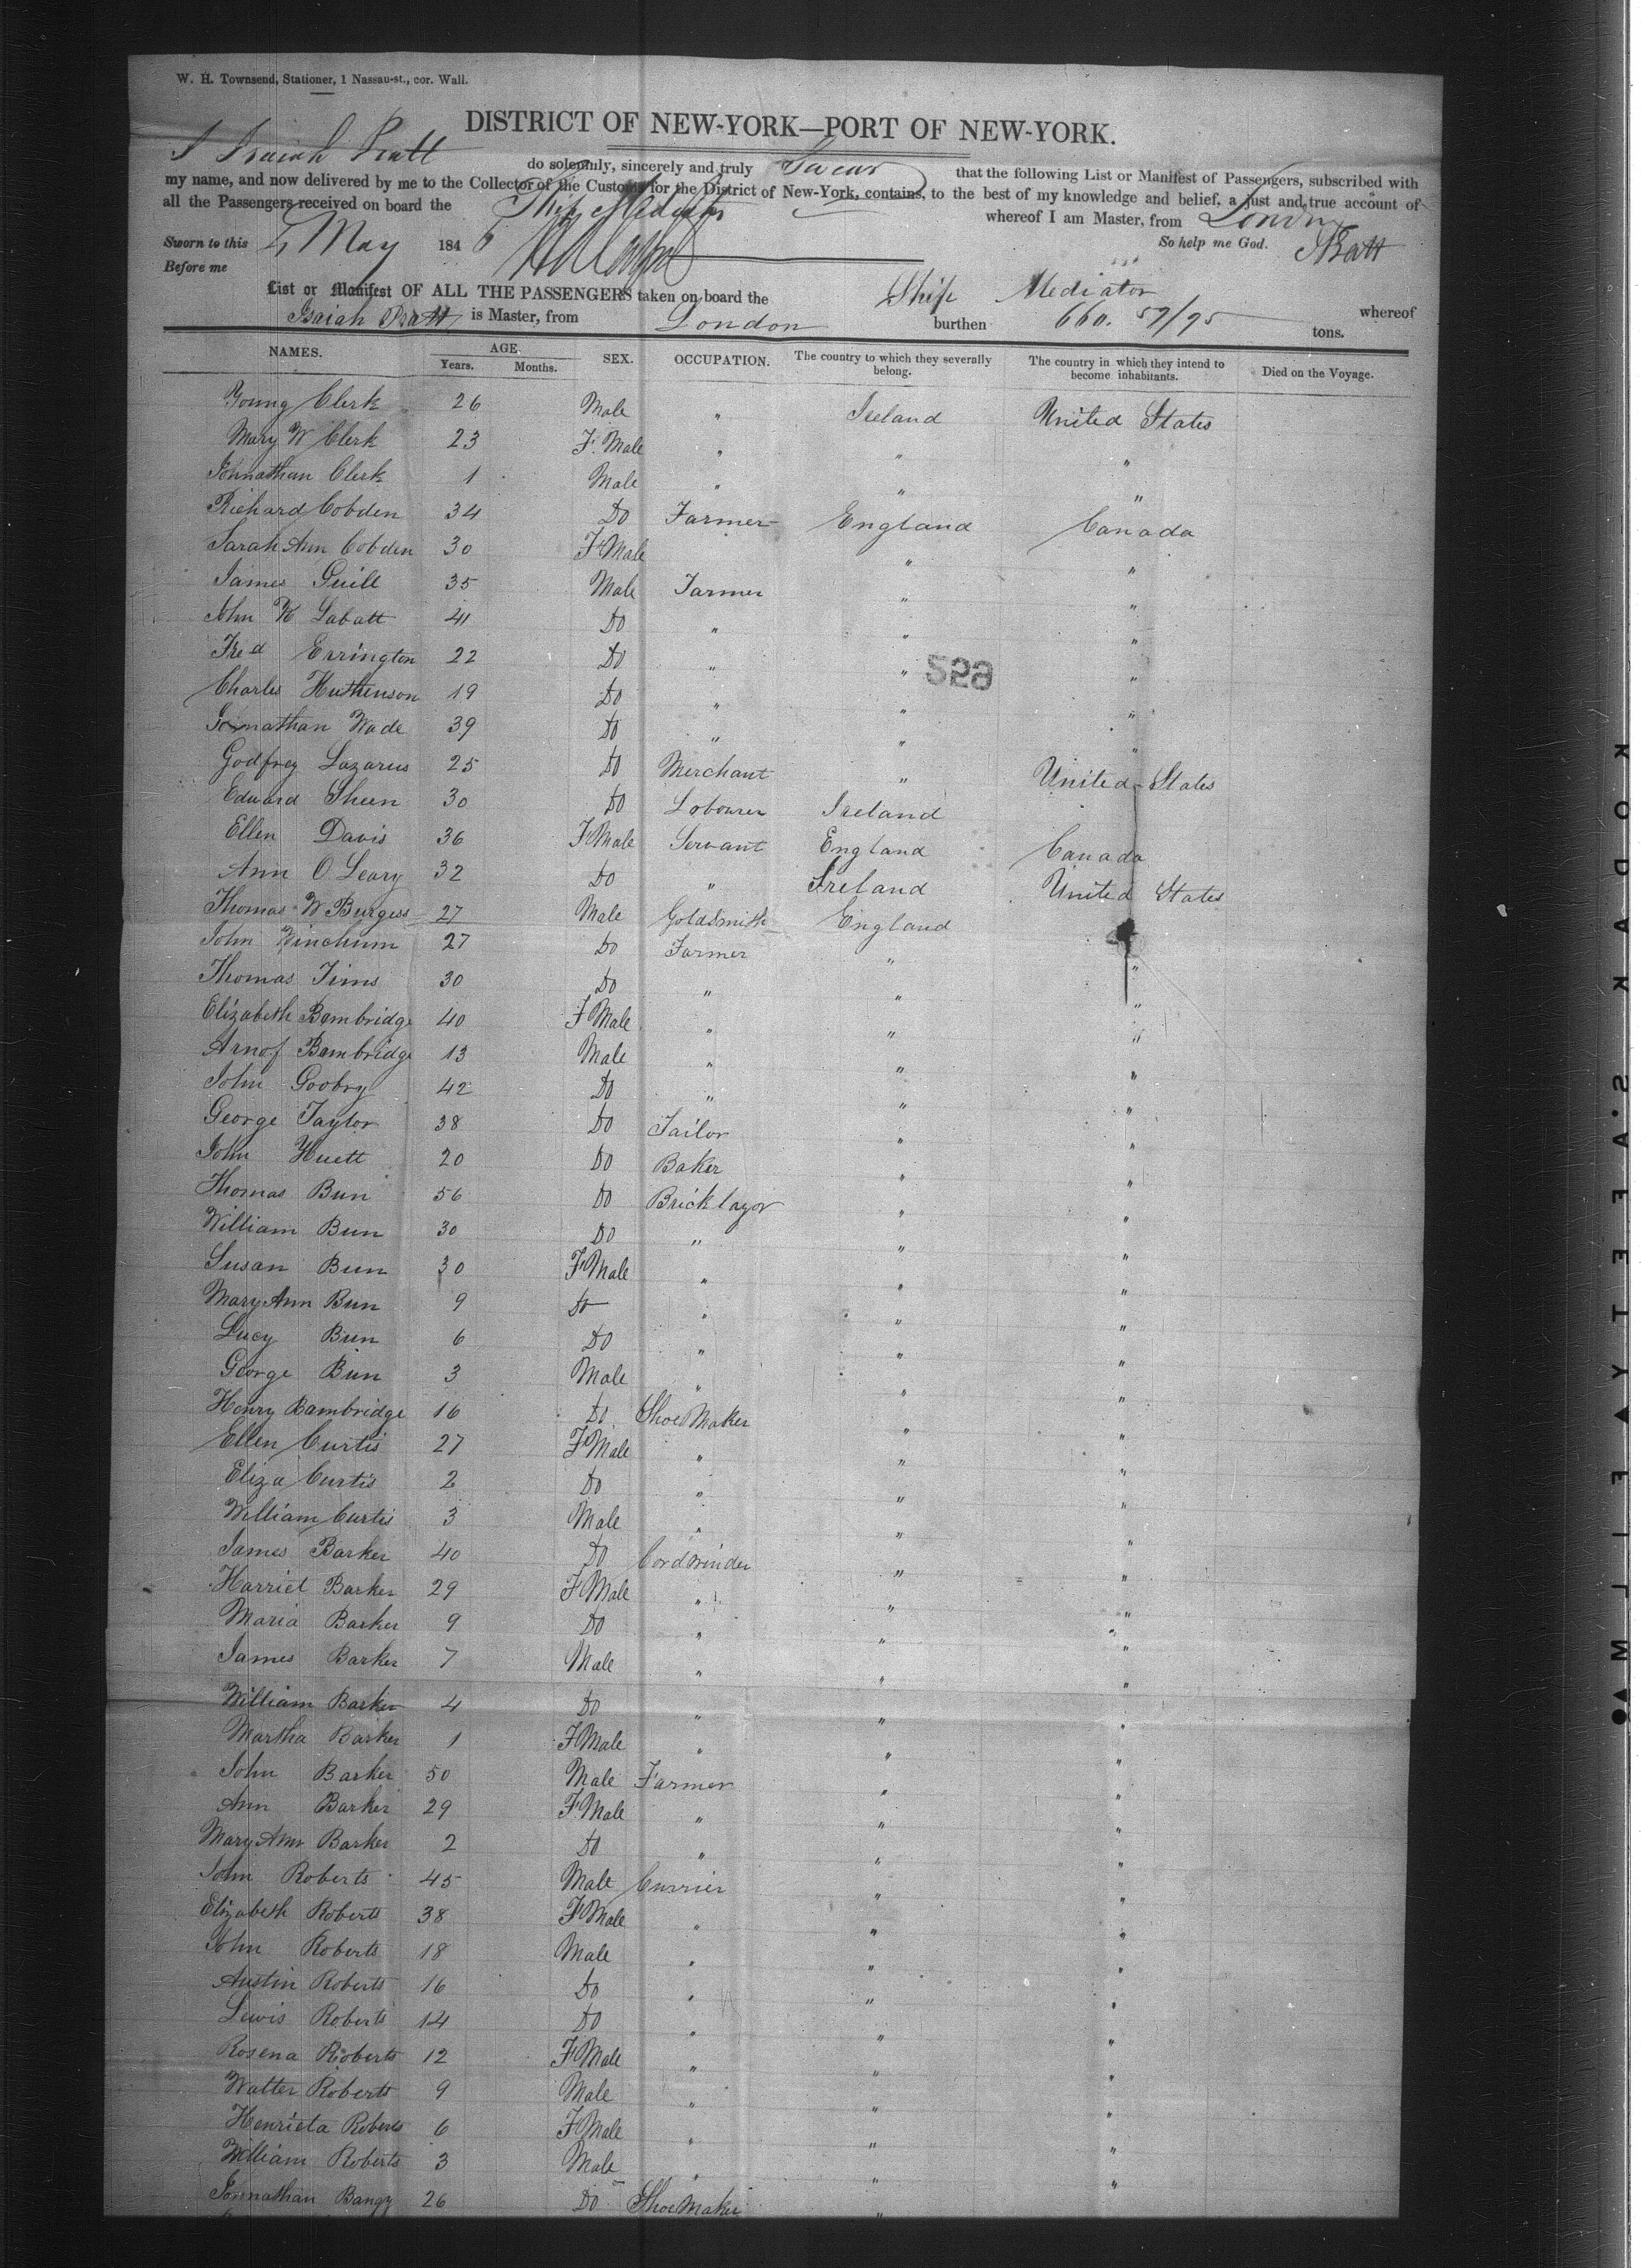 W. H. Townsend, Stationer, 1 Nassau-st., cor. Wall.
DISTRICT OF NEW-YORK—PORT OF NEW-YORK.
I Isaiah Pratt do solemnly, sincerely and truly Swear that the following List or Manifest of Passengers, subscribed with
my name, and now delivered by me to the Collector of the Customs for the District of New-York, contains, to the best of my knowledge and belief, a just and true account of
all the Passengers received on board the Ship Mediator whereof I am Master, from London
Sworn to this May 1846 So help me God. I Pratt
Before me
List or Manifest OF ALL THE PASSENGERS taken on board the Ship Mediator whereof
Isaiah Pratt is Master, from London burthen 660. 57/95 tons.
NAMES. AGE. SEX. OCCUPATION. The country to which they severally belong. The country in which they intend to become inhabitants. Died on the Voyage.
Years. Months.
Young Clerk 26 Male " Ireland United States
Mary W Clerk 23 F. Male " " "
Johnathan Clerk 1 Male " " "
Richard Cobden 34 Do Farmer England Canada
Sarah Ann Cobden 30 F Male " "
James Guill 35 Male Farmer " "
John K Labatt 41 Do " " "
Fred Errington 22 Do " " "
529
Charles Huthenson 19 Do " " "
Jonnathan Wade 39 Do " " "
Godfrey Lazarus 25 Do Merchant " United States
Edward Sheen 30 Do Labourer Ireland
Ellen Davis 36 F Male Servant England Canada
Ann O Leary 32 Do " Ireland United States
Thomas W Burgess 27 Male Goldsmith England
John Winchum 27 Do Farmer " "
Thomas Tims 30 Do " " "
Elizabeth Bambridge 40 F Male " " "
Arnof Bambridge 13 Male " " "
John Goobry 42 Do " " "
George Taylor 38 Do Tailor " "
John Huett 20 Do Baker " "
Thomas Bun 56 Do Bricklayor " "
William Bun 30 Do " " "
Susan Bun 30 F Male " " "
Mary Ann Bun 9 Do " " "
Lucy Bun 6 Do " " "
George Bun 3 Male " " "
Henry Bambridge 16 Do Shoe Maker " "
Ellen Curtis 27 F Male " " "
Eliza Curtis 2 Do " " "
William Curtis 3 Male " " "
James Barker 40 Do Cordwinder " "
Harriet Barker 29 F Male " " "
Maria Barker 9 Do " " "
James Barker 7 Male " " "
William Barker 4 Do " " "
Martha Barker 1 F Male " " "
John Barker 50 Male Farmer " "
Ann Barker 29 F Male " " "
Mary Ann Barker 2 Do " " "
John Roberts 45 Male Currier " "
Elizabeth Roberts 38 F Male " " "
John Roberts 18 Male " " "
Austin Roberts 16 Do " " "
Lewis Roberts 14 Do " " "
Rosena Roberts 12 F Male " " "
Walter Roberts 9 Male " " "
Henrieta Roberts 6 F Male " " "
William Roberts 3 Male " " "
Jonnathan Bangy 26 Do Shoe Maker "